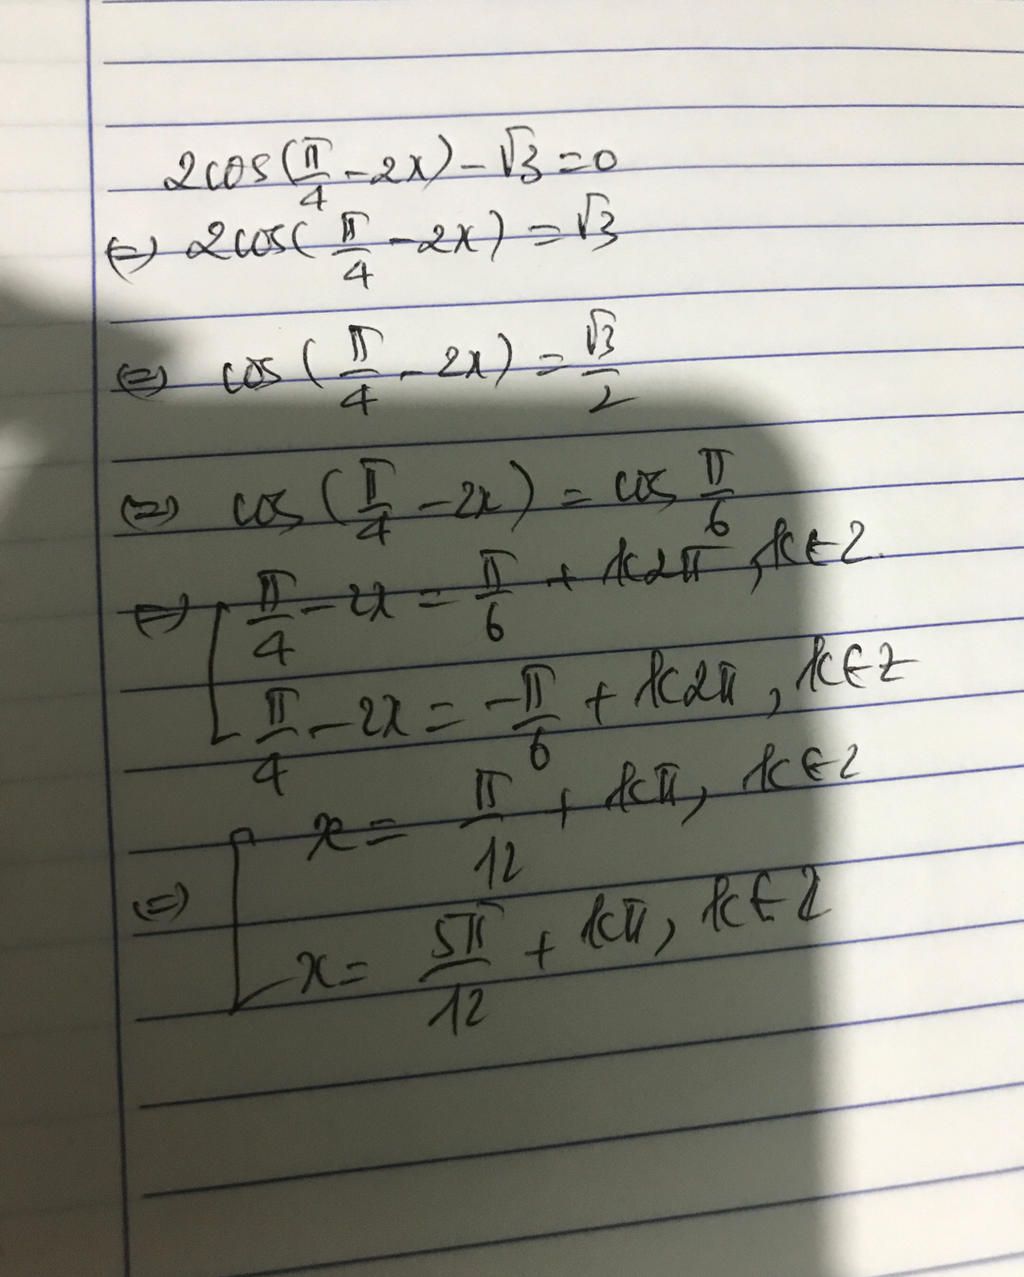 2cos(π/4 - 2x) - √3 = 0
⇔ 2cos(π/4 - 2x) = √3
⇔ cos(π/4 - 2x) = √3/2
⇔ cos(π/4 - 2x) = cos π/6
⇔ [ π/4 - 2x = π/6 + k2π, k∈Z.
π/4 - 2x = -π/6 + k2π, k∈Z
⇔ [ x = π/12 + kπ, k∈Z
x = 5π/12 + kπ, k∈Z